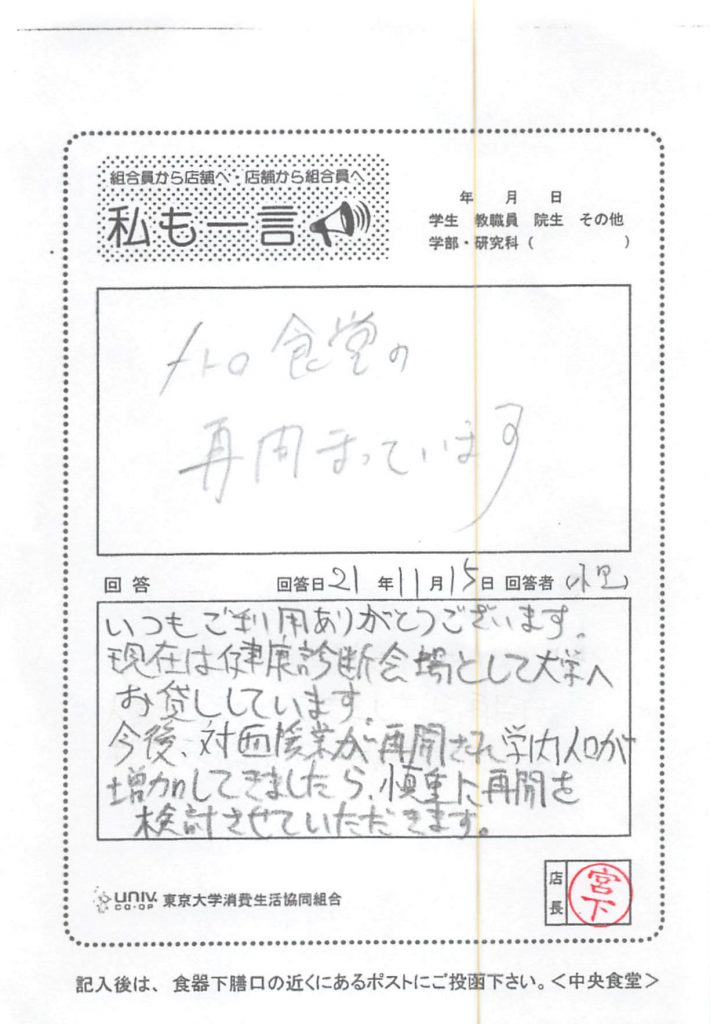 組合員から店舗へ・店舗から組合員へ
私も一言
年 月 日
学生 教職員 院生 その他
学部・研究科 ( )
メトロ食堂の
再開まっています
回答 回答日 21 年 11 月 15 日 回答者
いつもご利用ありがとうございます。
現在は健康診断会場として大学へ
お貸ししています。
今後、対面授業が再開され学内人口が
増加してきましたら、慎重に再開を
検討させていただきます。
UNIV.
CO-OP
東京大学消費生活協同組合
店長
宮下
記入後は、食器下膳口の近くにあるポストにご投函下さい。<中央食堂>